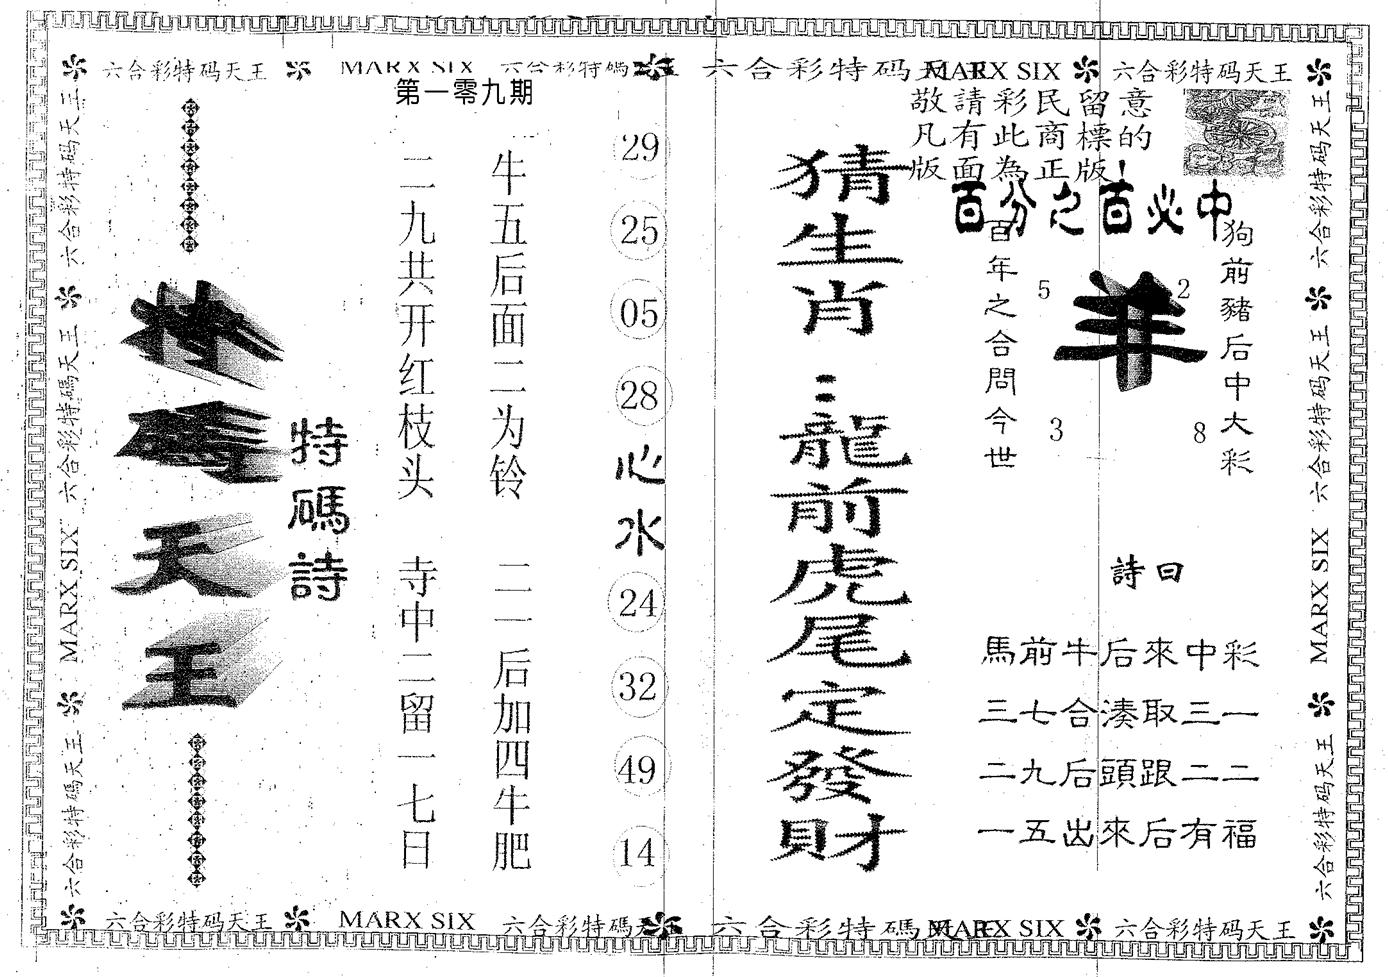 六合彩特码天王 MARX SIX 六合彩特碼天王 六合彩特码天王 MARX SIX 六合彩特码天王
第一零九期
敬請彩民留意
凡有此商標的
版面為正版！
百分之百必中
狗前豬后中大彩
羊
5
2
3
8
百年之合問今世
詩曰
馬前牛后來中彩
三七合湊取三一
二九后頭跟二二
一五出來后有福
猜生肖：龍前虎尾定發財
29
25
05
28
心水
24
32
49
14
牛五后面二为铃
二一后加四牛肥
二九共开红枝头
寺中二留一七日
特碼詩
特碼天王
六合彩特码天王
六合彩特碼天王
MARX SIX
六合彩特码天王
六合彩特码天王
六合彩特码天王
MARX SIX
六合彩特码天王
六合彩特码天王 MARX SIX 六合彩特碼天王 六合彩特碼天王 MARX SIX 六合彩特码天王